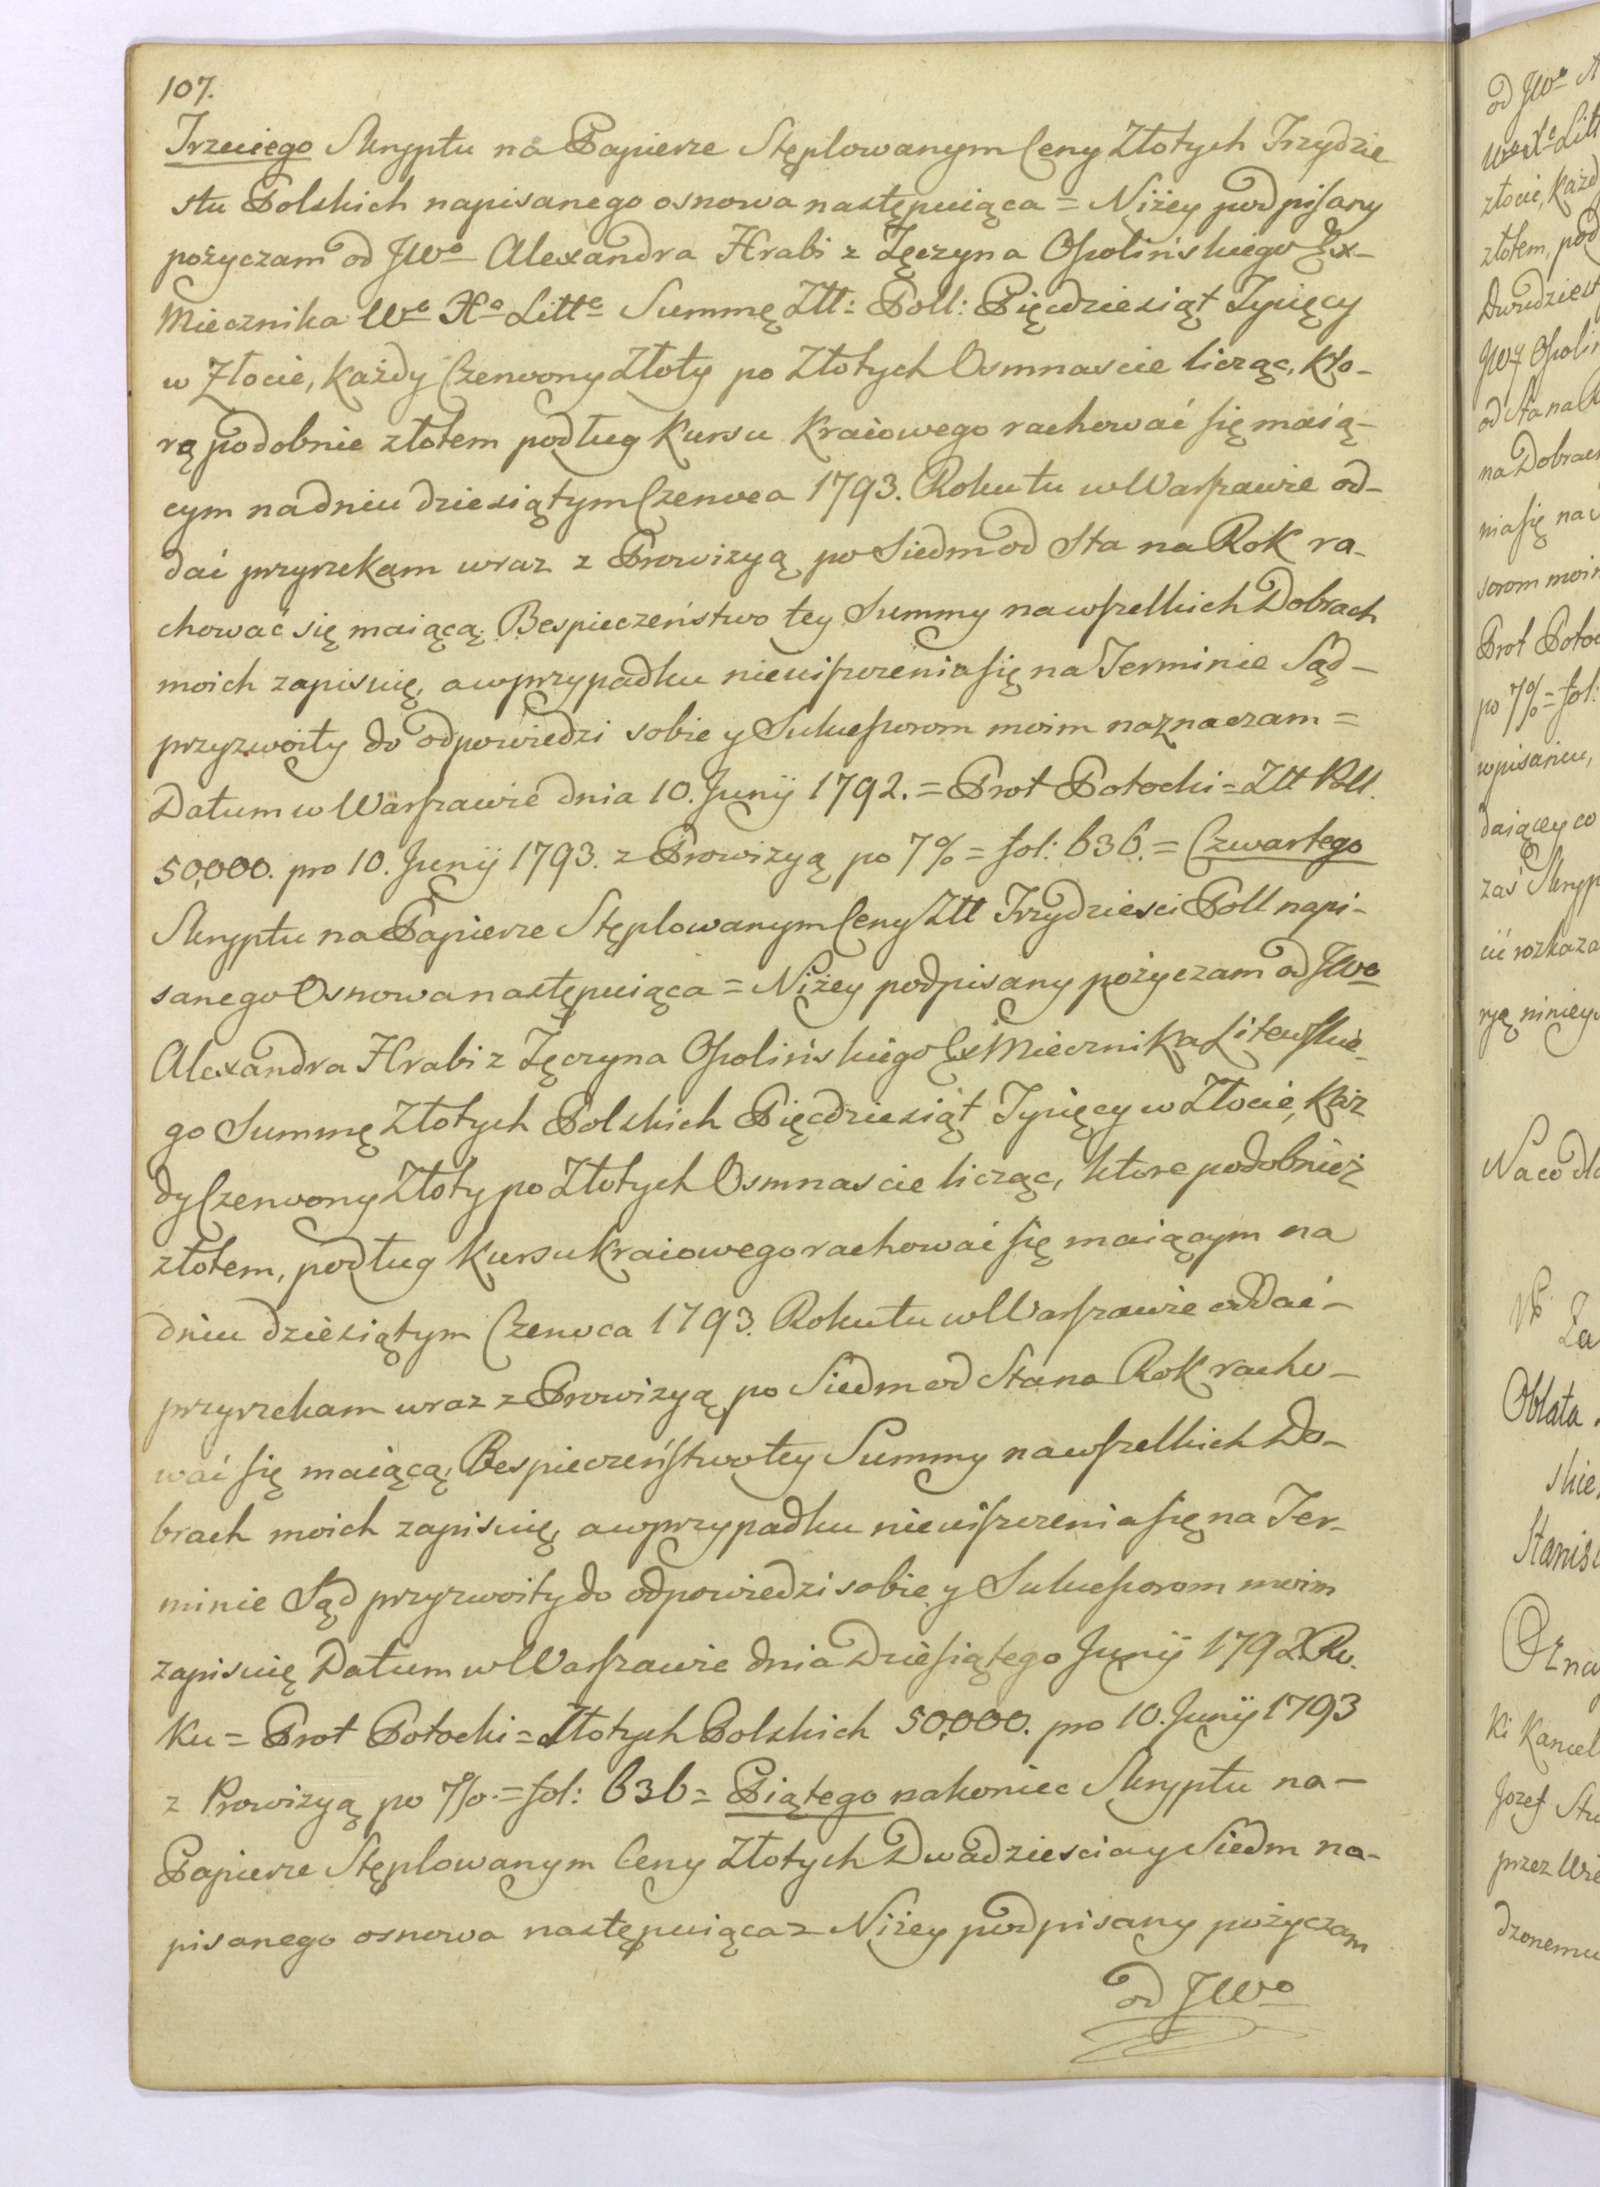 107.
Trzeciego Skryptu na Papierze Stęplowanym Ceny Złotych Trzydzie
stu Polskich napisanego osnowa następuiąca = Niżey podpisany
pożyczam od JWo Alexandra Hrabi z Tęczyna Ossolińskiego Ex-
Miecznika Wo Xo Litto Summę Złt: Poll: Pięcdziesiąt Tysięcy
w Złocie, każdy Czerwony Złoty po Złotych Osmnascie licząc, kto-
rą podobnie złotem podług kursu kraiowego rachować się maią-
cym na dniu dziesiątym Czerwca 1793. Roku tu w Warszawie od-
dać przyrzekam wraz z Prowizyą po Siedm od Sta na Rok ra-
chować się maiącą. Bespieczeństwo tey Summy na wszelkich Dobrach
moich zapisuię, a w przypadku nieuiszczenia się na Terminie Sąd-
przyzwoity do odpowiedzi sobie y Sukcessorom moim naznaczam =
Datum w Warszawie dnia 10. Junij 1792. = Prot Potocki = Złt Poll.
50,000. pro 10. Junij 1793. z Prowizyą po 7% = fol: 636. = Czwartego
Skryptu na Papierze Stęplowanym Ceny Złt Trzydziesci Poll napi-
sanego Osnowa następuiąca = Niżey podpisany pożyczam od JWo
Alexandra Hrabi z Tęczyna Ossolińskiego Ex Miecznika Litewskie-
go Summę Złotych Polskich Pięcdziesiąt Tysięcy w Złocie, każ
dy Czerwony Złoty po Złotych Osmnascie licząc, ktore podobnież
złotem, podług kursu kraiowego rachować się maiącym na
dniu dziesiątym Czerwca 1793. Roku tu w Warszawie oddać-
przyrzekam wraz z Prowizyą po Siedm od Sta na Rok racho-
wać się maiącą, Bespieczeństwo tey Summy na wszelkich Do-
brach moich zapisuię, a w przypadku nieuiszczenia się na Ter-
minie Sąd przyzwoity do odpowiedzi sobie y Sukcessorom moim
zapisuię Datum w Warszawie dnia Dziesiątego Junij 1792 Ro.
ku = Prot Potocki = Złotych Polskich 50,000. pro 10. Junij 1793
z Prowizyą po 7%. = fol: 636 = Piątego nakoniec Skryptu na-
Papierze Stęplowanym Ceny Złotych Dwadziescia y Siedm na-
pisanego osnowa następuiąca = Niżey podpisany pożyczam
od JWo